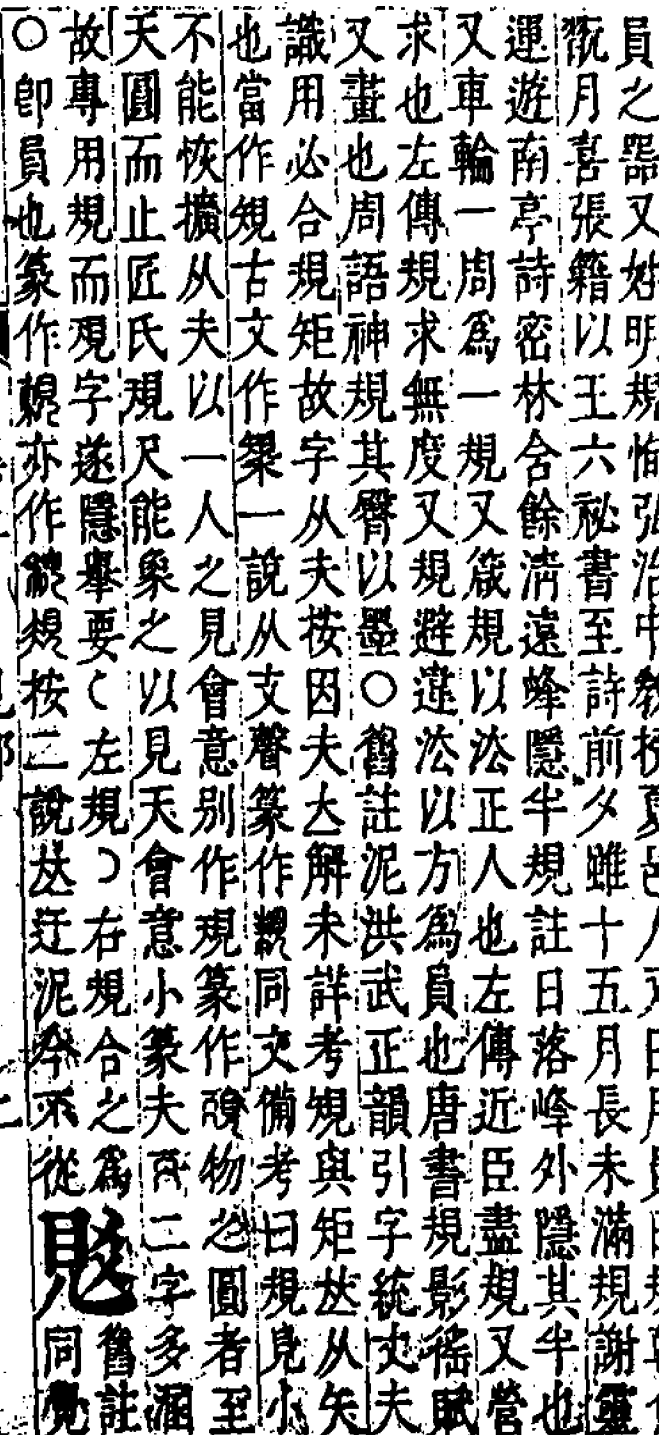 員之器又姓明規恂弘治中教授夏邑人
翫月喜張籍以王六祕書至詩前夕雖十五月長未滿規謝靈
運遊南亭詩密林含餘淸遠峰隱半規註日落峰外隱其半也
又車輪一周爲一規又箴規以法正人也左傳近臣盡規又營
求也左傳規求無度又規避違法以方爲員也唐書規影徭賦
又畫也周語神規其臀以墨○舊註泥洪武正韻引字統丈夫
識用必合規矩故字从夫按因夫㕕解未詳考規與矩𠀤从矢
也當作䂓古文作𣗥一說从支聲篆作䂓同文備考曰規見小
不能恢擴从夫以一人之見會意別作規篆作物之圓者至
天圓而止匠氏規尺能象之以見天會意小篆夫二字多溷
故專用規而字遂隱舉要㇁左規㇆右規合之爲舊註
○卽員也篆作亦作規按二說𠀤迂泥今不從同覺